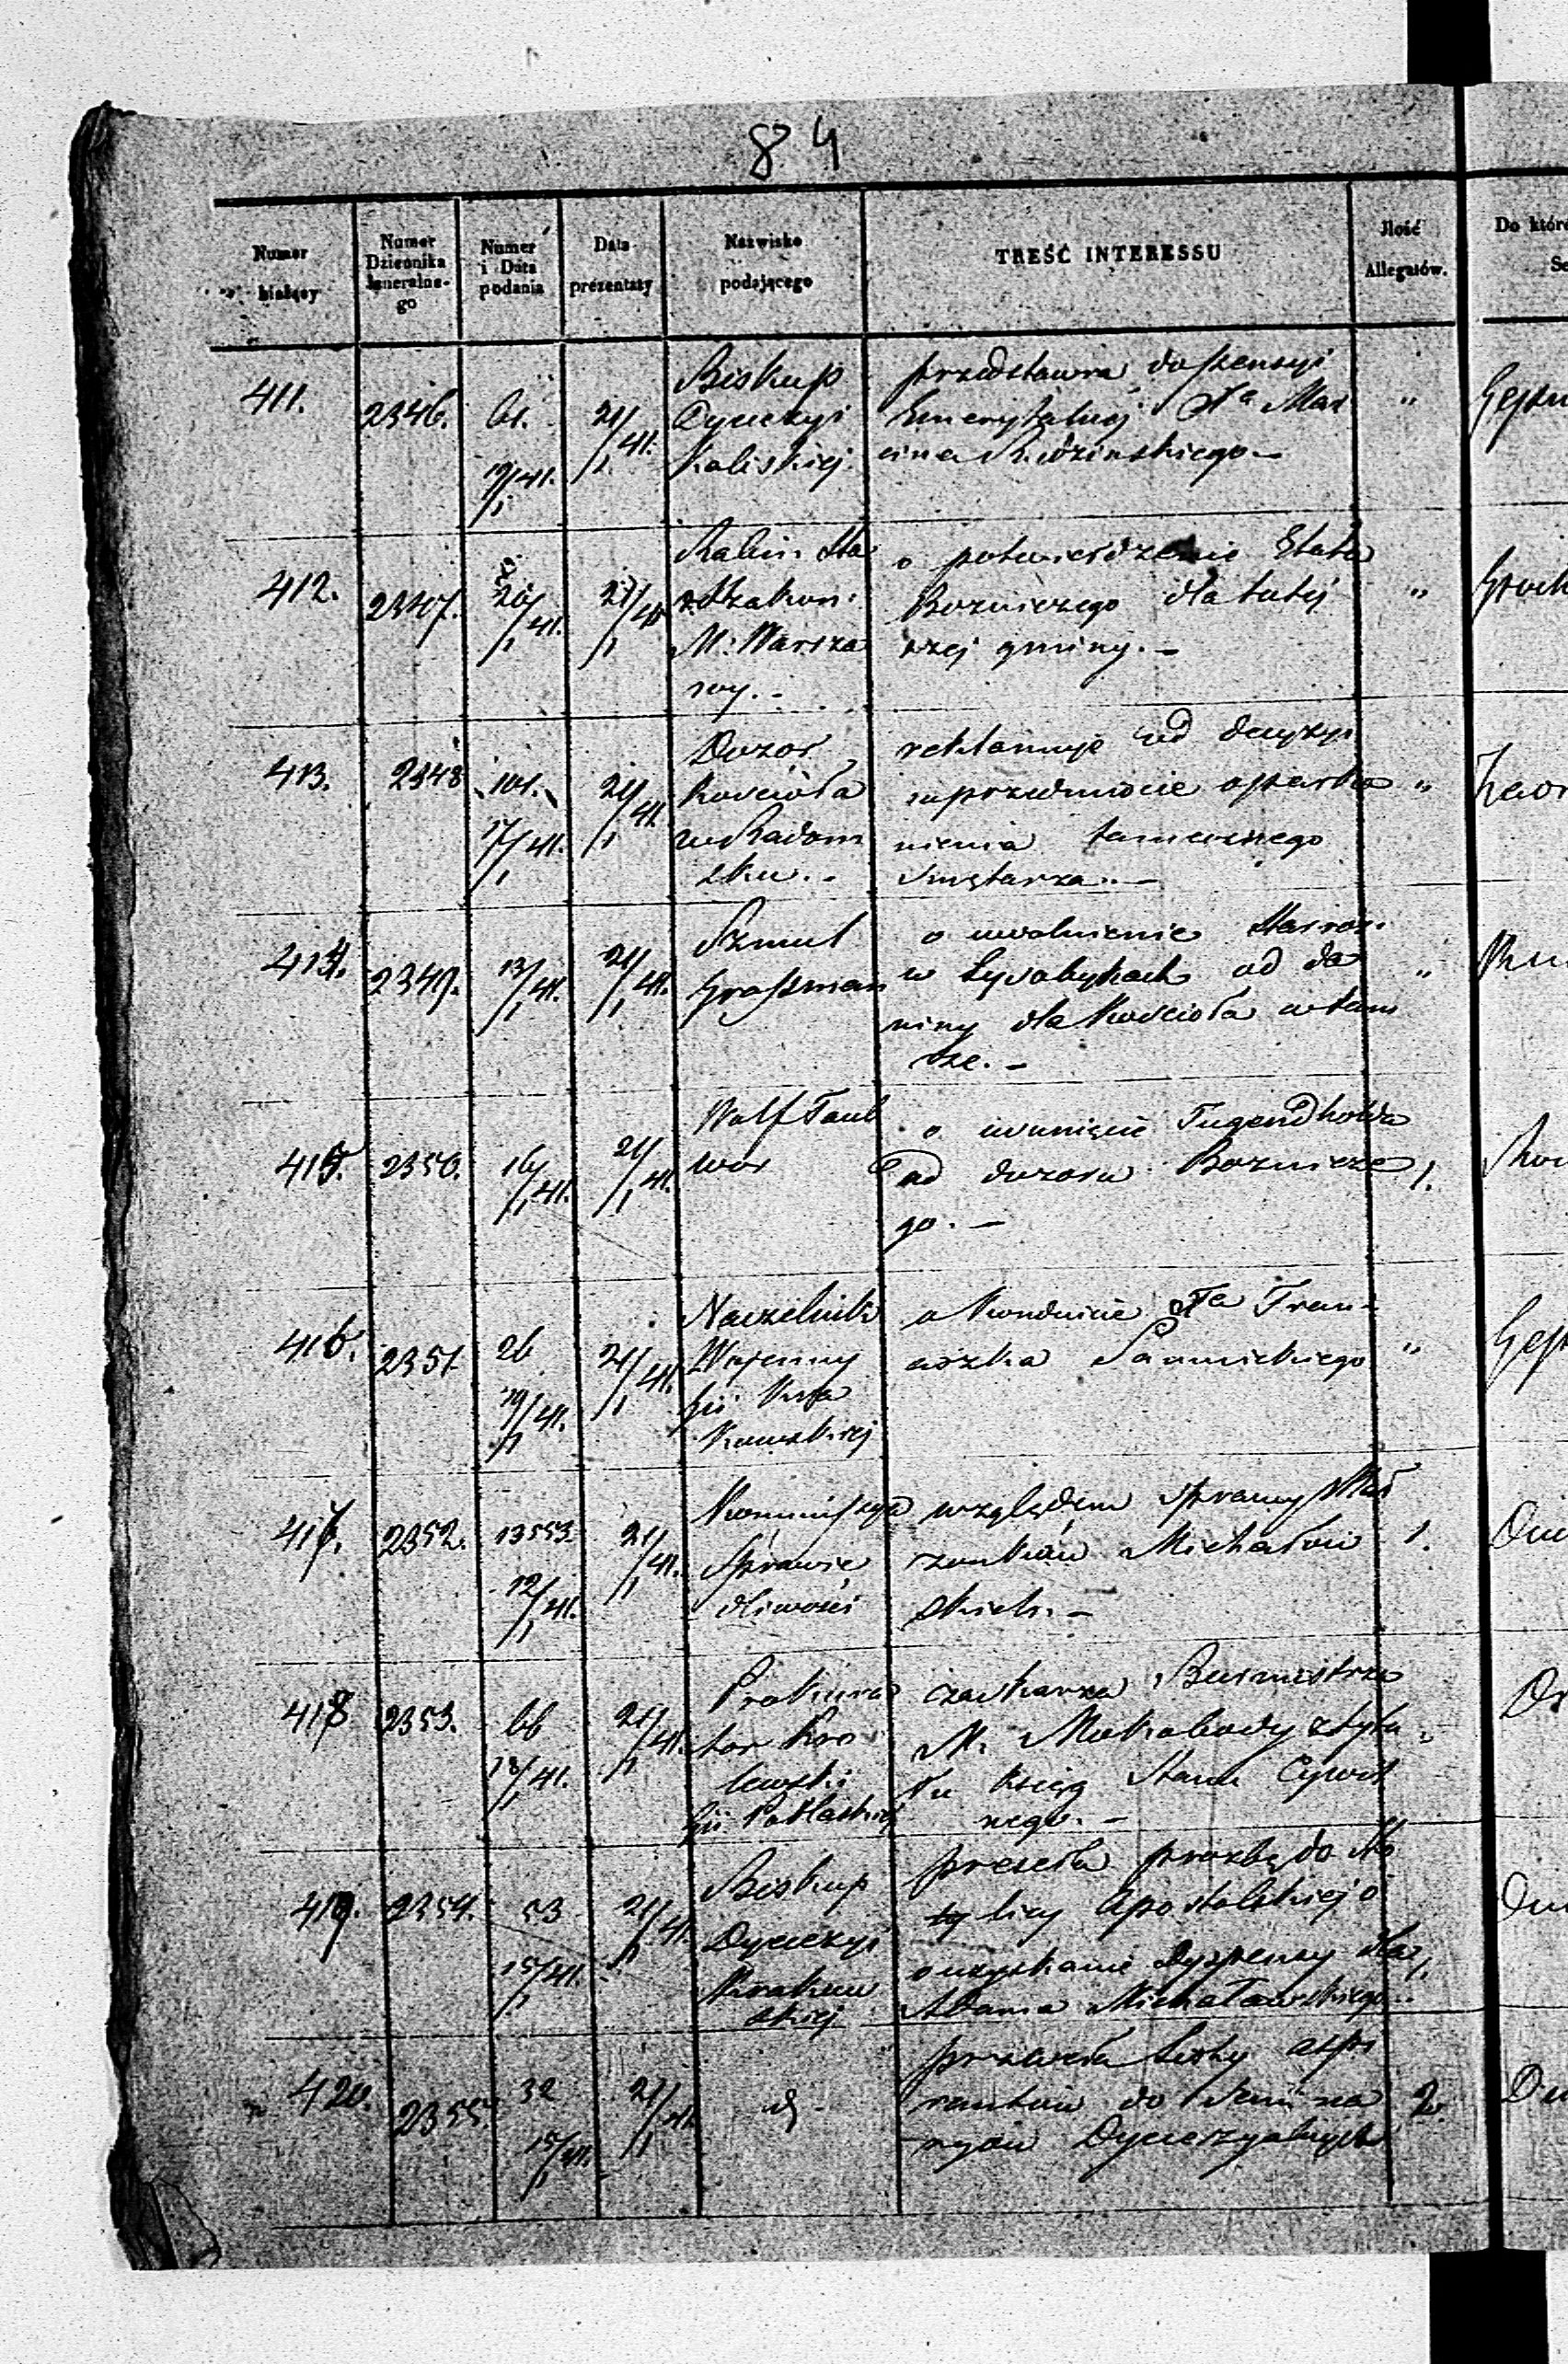 84
Numer bieżący
Numer Dziennika Jeneralne-go
Numer i Data podania
Data prezentaty
Nazwisko podającego
TREŚĆ INTERESSU
Ilość Allegatów.
Do które
Se
411.
2346.
61.
19/1 41.
21/1 41.
Biskup
Dyecezyi
Kaliskiej
przedstawia do pensyi
Emerytalnej Xa Mar
cina
"
412.
2347.
20/1 41.
21/1 41
Rabin Sta
rozakon:
M: Warsza
wy. -
o potwierdzenie Etatu
Bozniczego dla tutej
szej gminy. -
"
413.
2348
101.
17/1 41.
21/1 41
Dozor
Kościoła
w Radom
sku. -
reklamuje od decyzyi
w przedmiocie oparka
nienia tamecznego
Smętarza. -
"
414.
2349.
13/1 41.
21/1 41.
Szmul
Grossman
o uwolnienie Staroz:
w Łysobykach od da
niny dla Kościoła w tam
że. -
"
415.
2350.
16/1 41.
21/1 41.
Wolf Taub
wor
o usunięcie Tugendholda
od dozoru Boznicze
go. -
1.
416.
2351
26
19/1 41.
21/1 41.
Naczelnik
Wojenny
Gii Kra
kowskiej
o Konduicie Xa Fran-
ciszka
"
417.
2352.
13553.
12/1 41.
21/1 41.
Kommissya
Sprawie
dliwości
względem sprawy Mał
żonków Michałow
skich. -
1.
418
2353.
66
18/1 41.
21/1 41.
Prokura
tor Kro
lewski
Gii Podlaskiej
zaskarza Burmistrza
M. Mokobody z tytu
łu Ksiąg Stanu Cywil
nego. -
"
419.
2354.
53
15/1 41.
21/1 41.
Biskup
Dyecezyi
Krakow
skiej
przeseła prozbę do Sto
licy Apostolskiej o
o uzyskanie Dyspensy dla
Adama Michałowskiego. -
1.
420.
2355.
32
15/1 41.
21/1 41.
dº
przeseła Listy aspi
rantów do Semina
ryow Dyecezyalnych
2.